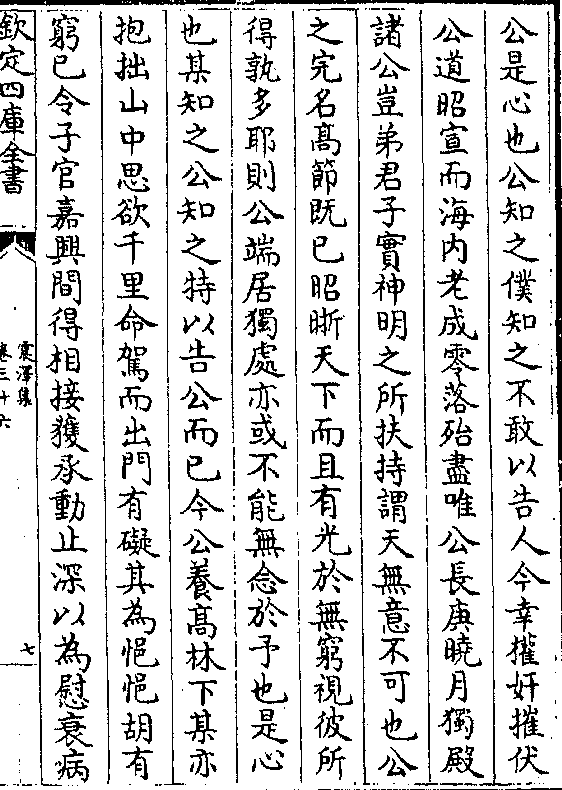 公是心也公知之僕知之不敢以告人今幸權奸摧伏
公道昭宣而海内老成零落殆盡唯公長庚曉月獨殿
諸公豈弟君子實神明之所扶持謂天無意不可也公
之完名髙節既已昭晣天下而且有光於無窮視彼所
得孰多耶則公端居獨處亦或不能無念於予也是心
也某知之公知之特以告公而已今公養髙林下某亦
抱拙山中思欲千里命駕而出門有礙其為悒悒胡有
窮已令子官嘉興間得相接獲承動止深以為慰衰病
欽定四庫全書
震澤集
卷三十六
七